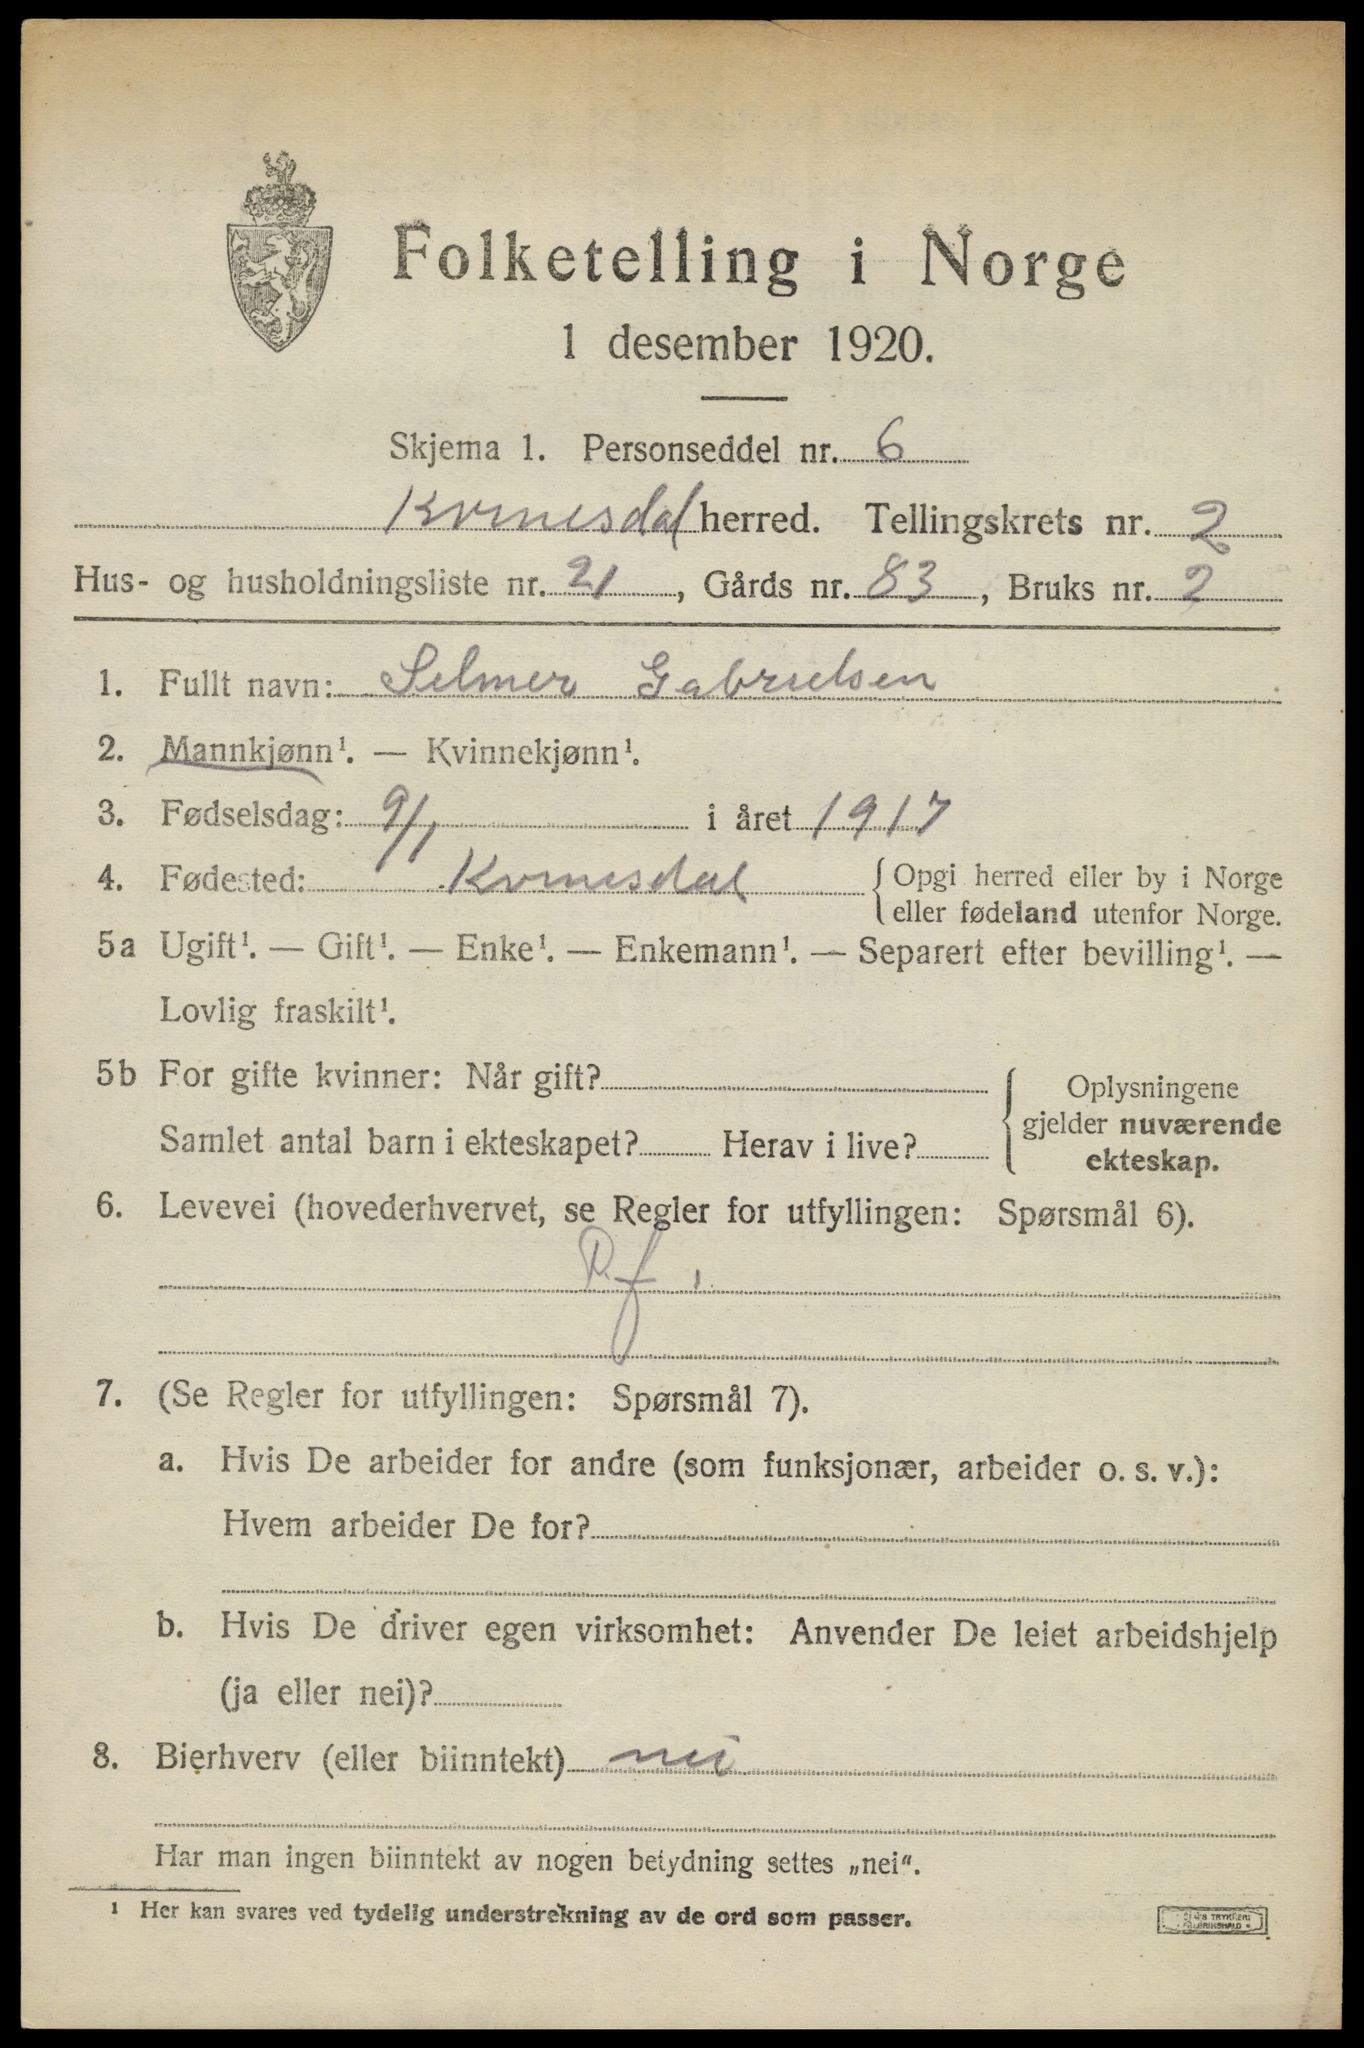 Folketelling i Norge
1 desember 1920.
Skjema 1. Personseddel nr. 6
Kvinesdal herred. Tellingskrets nr. 2
Hus- og husholdningsliste nr. 21, Gårds nr. 83, Bruks nr. 2
1. Fullt navn: Selmer Gabrielsen
2. Mannkjønn¹. — Kvinnekjønn¹.
3. Fødselsdag: 9/1 i året 1917
4. Fødested: Kvinesdal { Opgi herred eller by i Norge
eller fødeland utenfor Norge.
5a Ugift¹. — Gift¹. — Enke¹. — Enkemann¹. — Separert efter bevilling¹. —
Lovlig fraskilt¹.
5b For gifte kvinner: Når gift?
Samlet antal barn i ekteskapet? Herav i live?
Oplysningene
gjelder nuværende
ekteskap.
6. Levevei (hovederhvervet, se Regler for utfyllingen: Spørsmål 6).
7. (Se Regler for utfyllingen: Spørsmål 7).
a. Hvis De arbeider for andre (som funksjonær, arbeider o. s. v.):
Hvem arbeider De for?
b. Hvis De driver egen virksomhet: Anvender De leiet arbeidshjelp
(ja eller nei)?
8. Bierhverv (eller biinntekt) nei
Har man ingen biinntekt av nogen betydning settes „nei“.
¹ Her kan svares ved tydelig understrekning av de ord som passer.